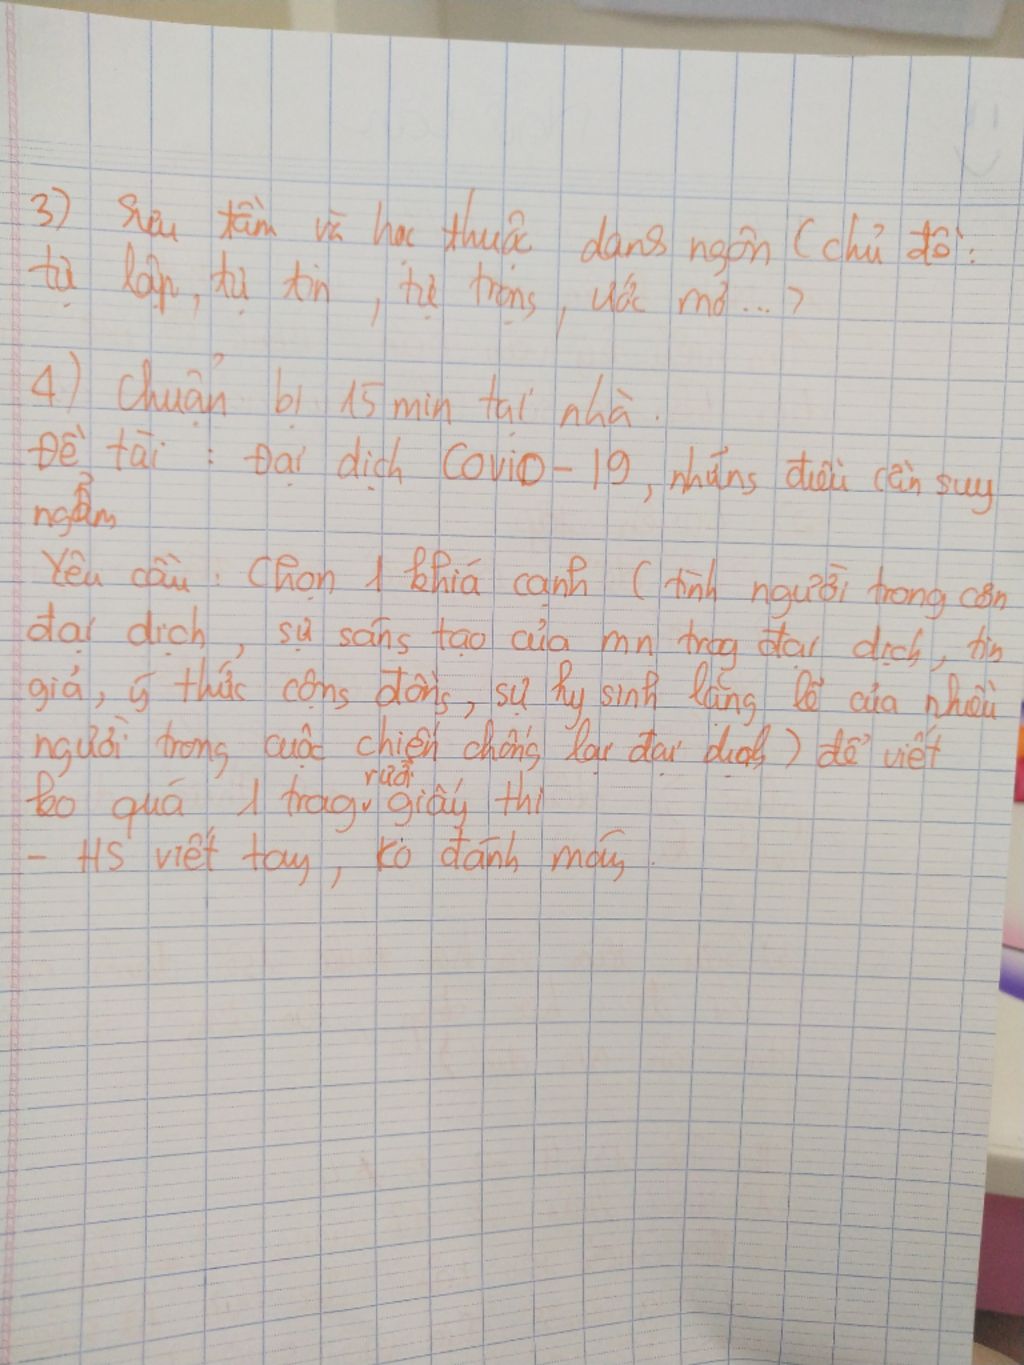 3) Sưu tầm và học thuộc dang ngôn (chủ đề:
tự lập, tự tin, tự trọng, ước mơ...)
4) Chuẩn bị 15 min tại nhà.
Đề tài: Đại dịch Covid-19, những điều cần suy
ngẫm
Yêu cầu: Chọn 1 khía cạnh (tình người trong cơn
đại dịch, sự sáng tạo của mn trog đại dịch, tin
giả, ý thức cộng đồng, sự hy sinh lặng lẽ của nhiều
người trong cuộc chiến chống lại đại dịch) để viết
ko quá 1 trag rưỡi giấy thi
- HS viết tay, ko đánh máy.